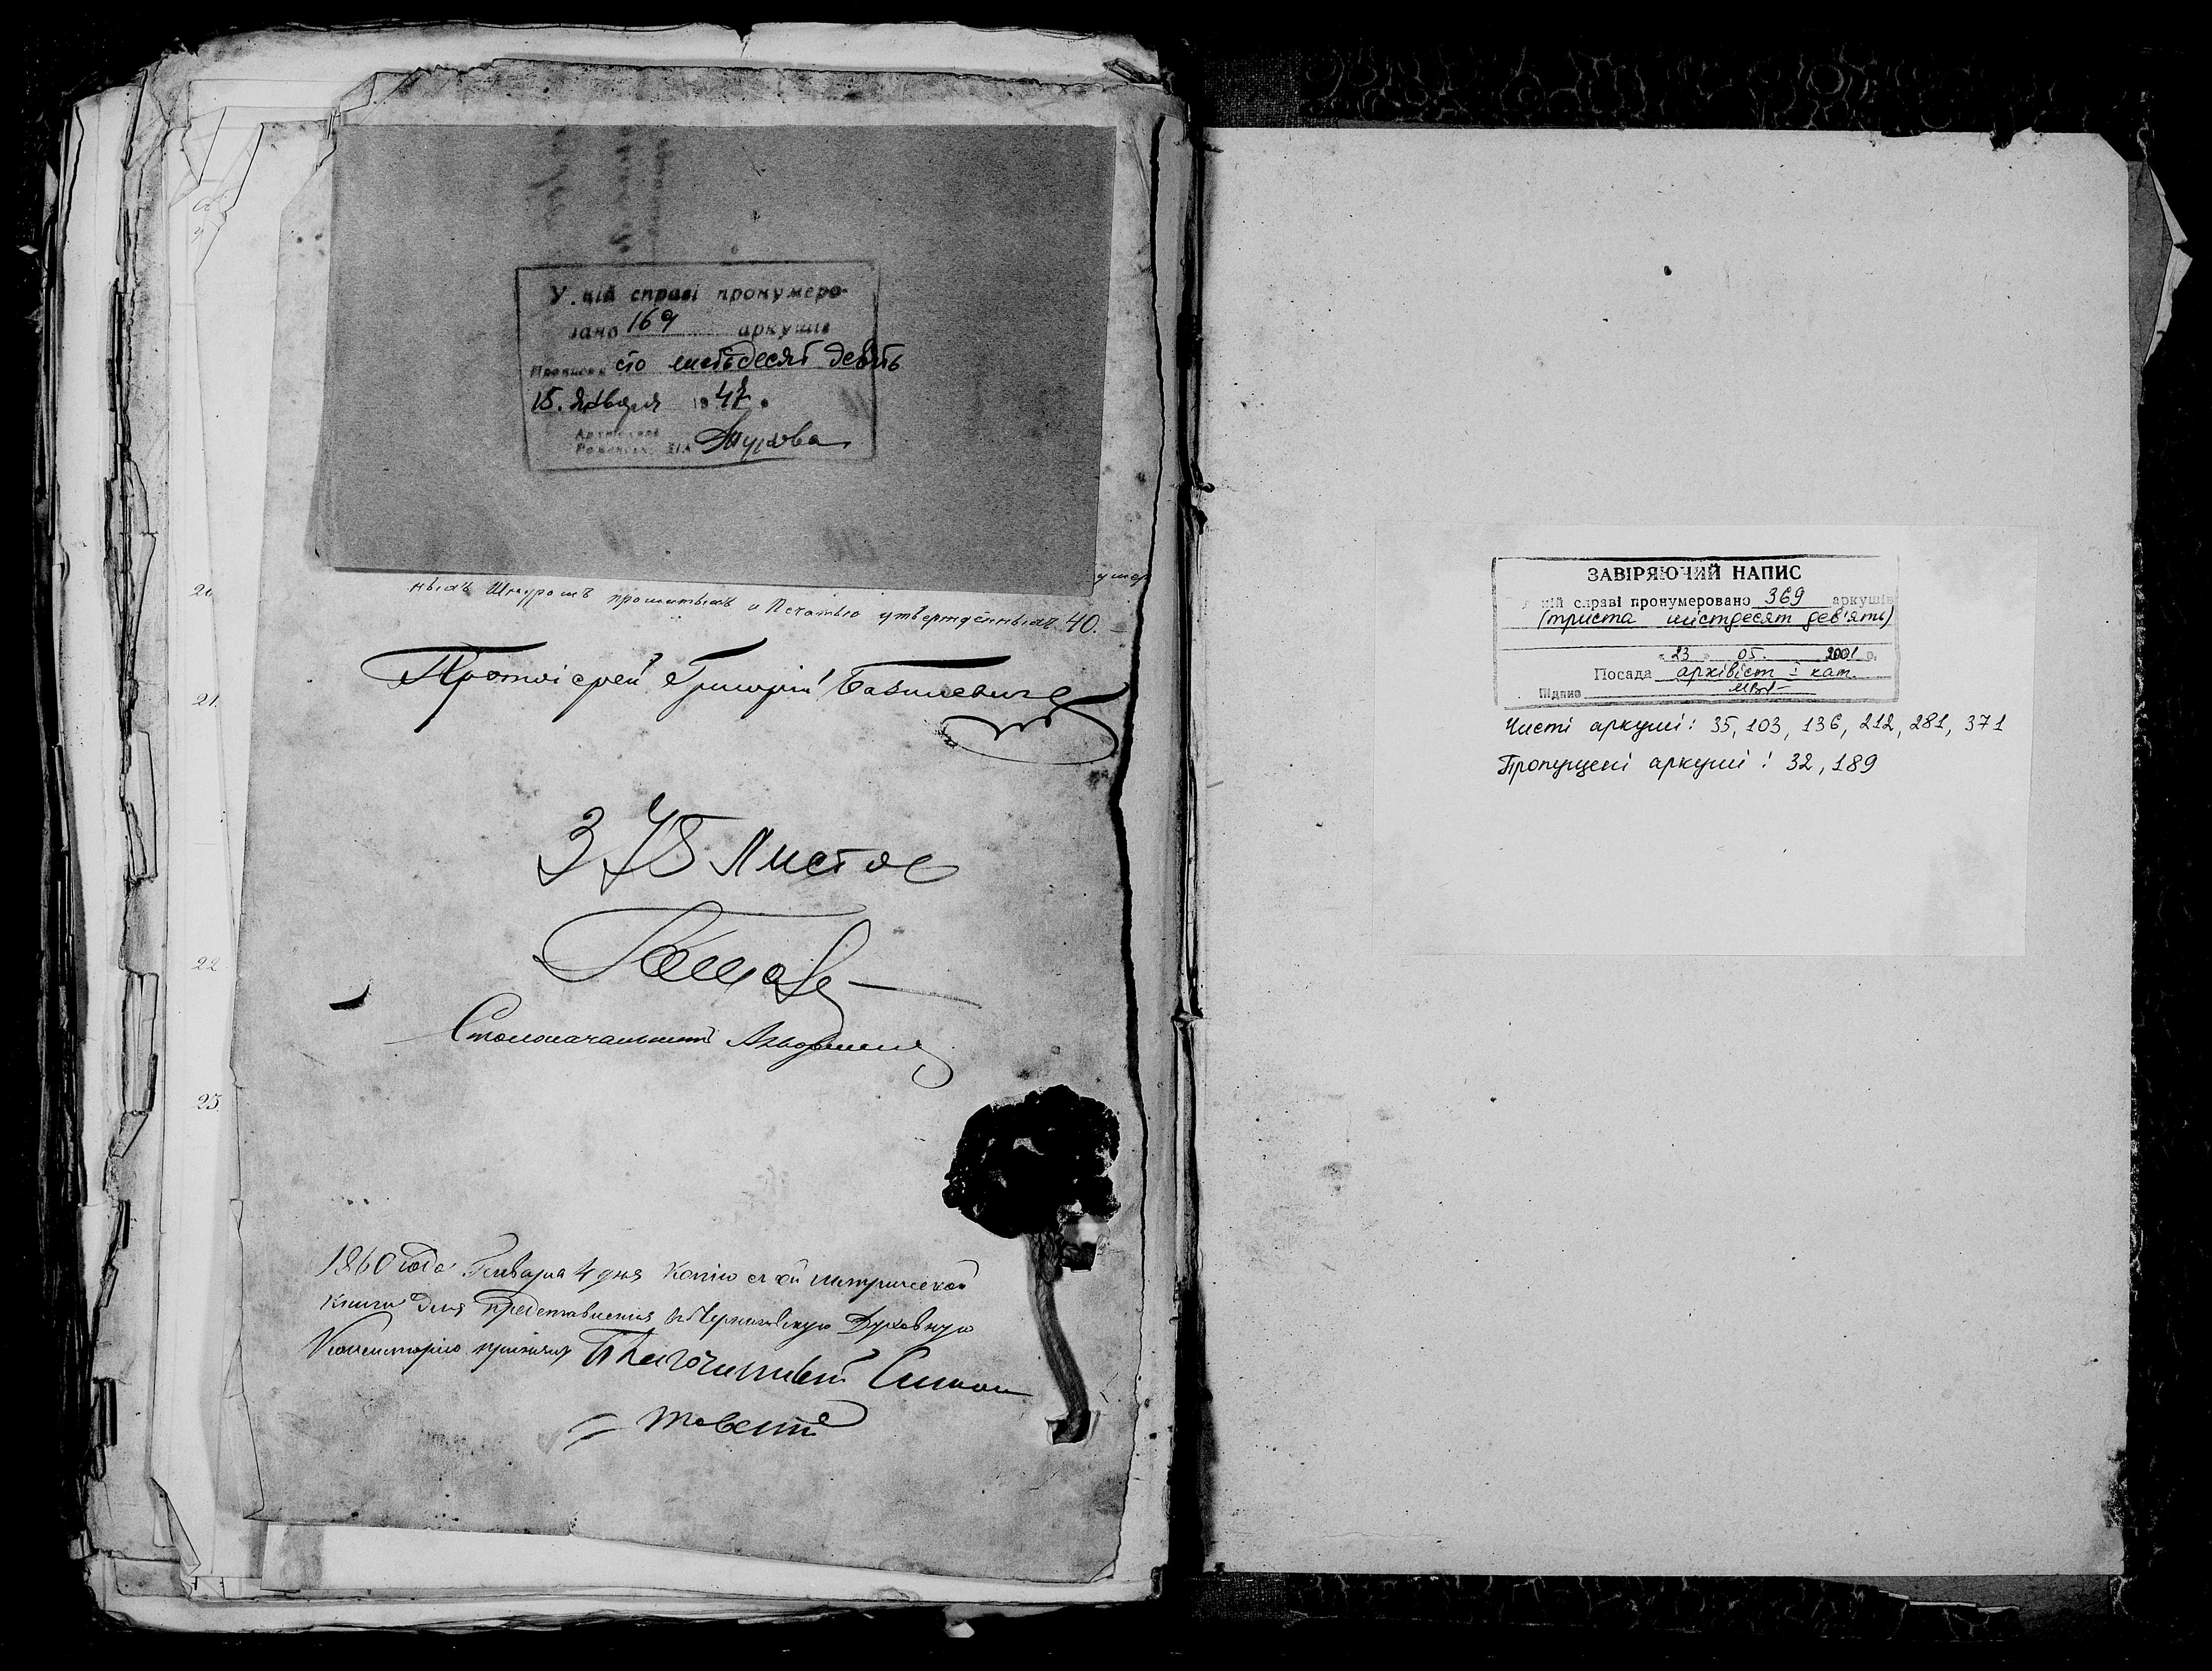 У цій справі пронумеро-
вано 169 аркушів
Прописом сто шестьдесят девять
15. января 1947 р
Архівіст
Романськ. Жукова
ныхъ Шнуромъ прошитыхъ и Печатью утвержденныхъ 40.
Протоіерей Григорій Базилевичъ
378 Листов
Столоначальникъ
20
21
22
23
1860 года Генваря 4 дня Копію сей метрической
книги для представленія в Черниговскую Духовную
Консисторію принялъ Благочинный Симон
ЗАВІРЯЮЧИЙ НАПИС
У цій справі пронумеровано 369 аркушів
(триста шістдесят дев'ять)
" 23 " 05. 2001 р.
Посада архівіст І кат.
Підпис
Чисті аркуші: 35, 103, 136, 212, 281, 371
Пропущені аркуші: 32, 189